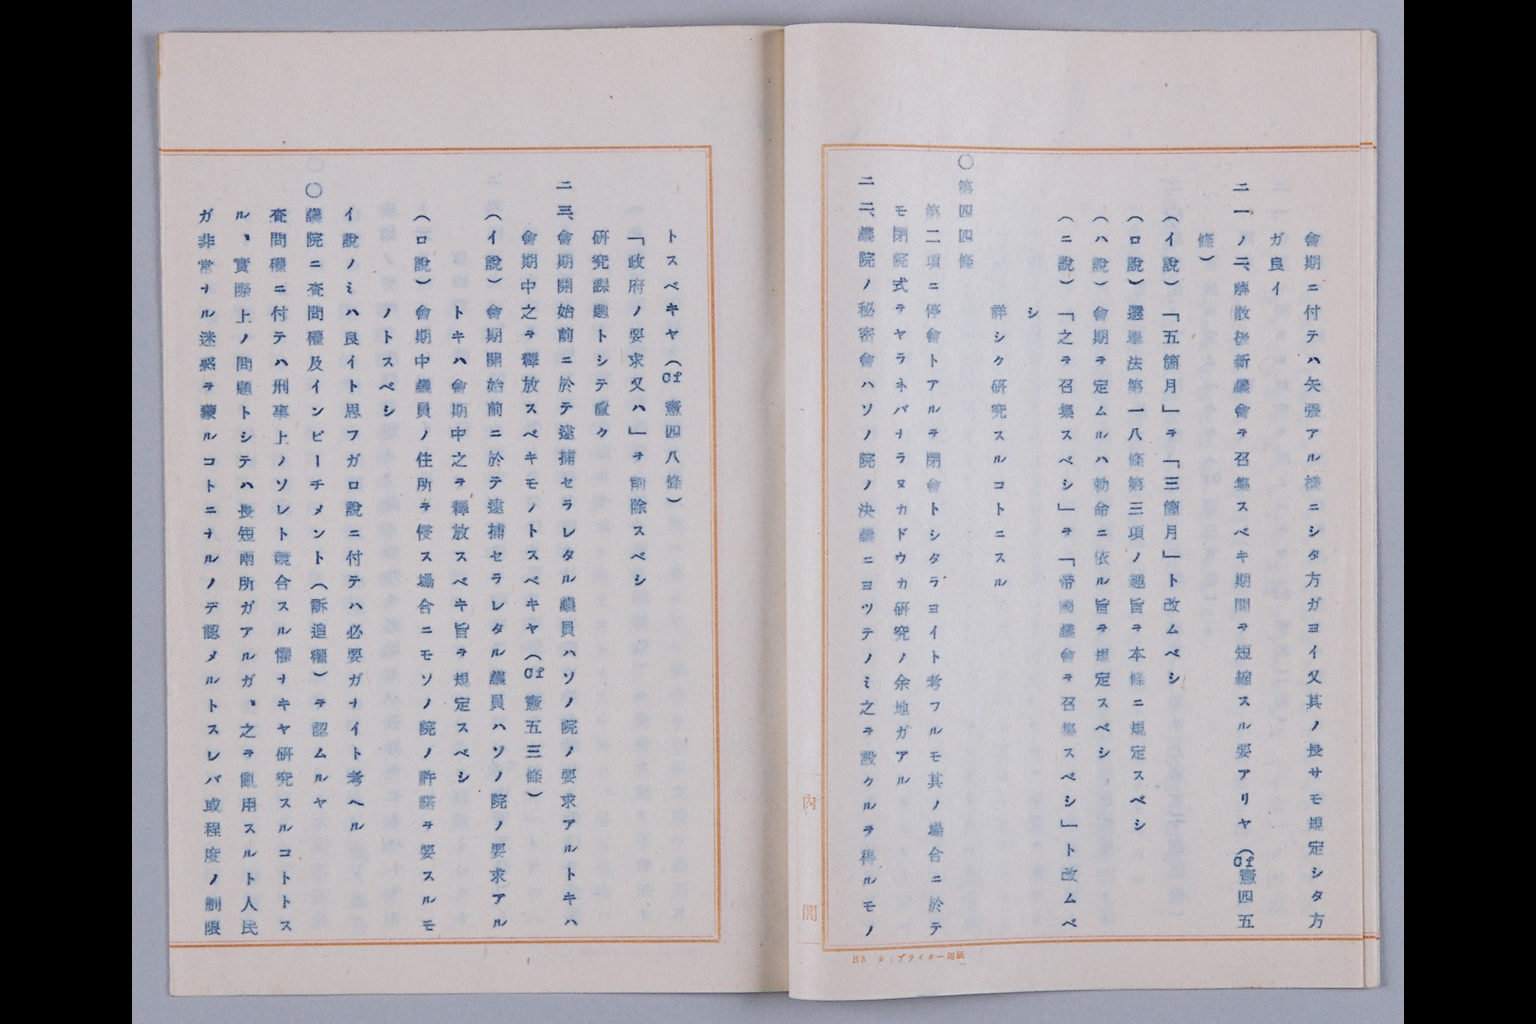 會期ニ付テハ矢張アル樣ニシタ方ガヨイ又其ノ長サモ規定シタ方
ガ良イ
二一ノ二、解散後新議會ヲ召集スベキ期間ヲ短縮スル要アリヤ(Cf憲四五
條)
(イ說)「五箇月」ヲ「三箇月」ト改ムベシ
(ロ說)選擧法第一八條第三項ノ趣旨ヲ本條ニ規定スベシ
(ハ說)會期ヲ定ムルハ勅命ニ依ル旨ヲ規定スベシ
(ニ說)「之ヲ召集スベシ」ヲ「帝國議會ヲ召集スベシ」ト改ムベ
シ
詳シク硏究スルコトニスル
〇第四四條
第二項ニ停會トアルヲ閉會トシタラヨイト考フルモ其ノ場合ニ於テ
モ閉院式ヲヤラネバナラヌカドウカ硏究ノ余地ガアル
二二、議院ノ秘密會ハソノ院ノ決議ニヨツテノミ之ヲ設クルヲ得ルモノ
內閣
B5 タイプライター用紙
トスベキヤ(Cf憲四八條)
「政府ノ要求又ハ」ヲ削除スベシ
硏究課題トシテ置ク
二三、會期開始前ニ於テ逮捕セラレタル議員ハソノ院ノ要求アルトキハ
會期中之ヲ釋放スベキモノトスベキヤ(Cf憲五三條)
(イ說)會期開始前ニ於テ逮捕セラレタル議員ハソノ院ノ要求アル
トキハ會期中之ヲ釋放スベキ旨ヲ規定スベシ
(ロ說)會期中議員ノ住所ヲ侵ス場合ニモソノ院ノ許諾ヲ要スルモ
ノトスベシ
イ說ノミハ良イト思フガロ說ニ付テハ必要ガナイト考ヘル
〇〇議院ニ査問權及インピーチメント(訴追權)ヲ認ムルヤ
査問權ニ付テハ刑事上ノソレト競合スル懼ナキヤ硏究スルコトトス
ル、實際上ノ問題トシテハ長短兩所ガアルガ、之ヲ亂用スルト人民
ガ非常ナル迷惑ヲ蒙ルコトニナルノデ認メルトスレバ或程度ノ制限